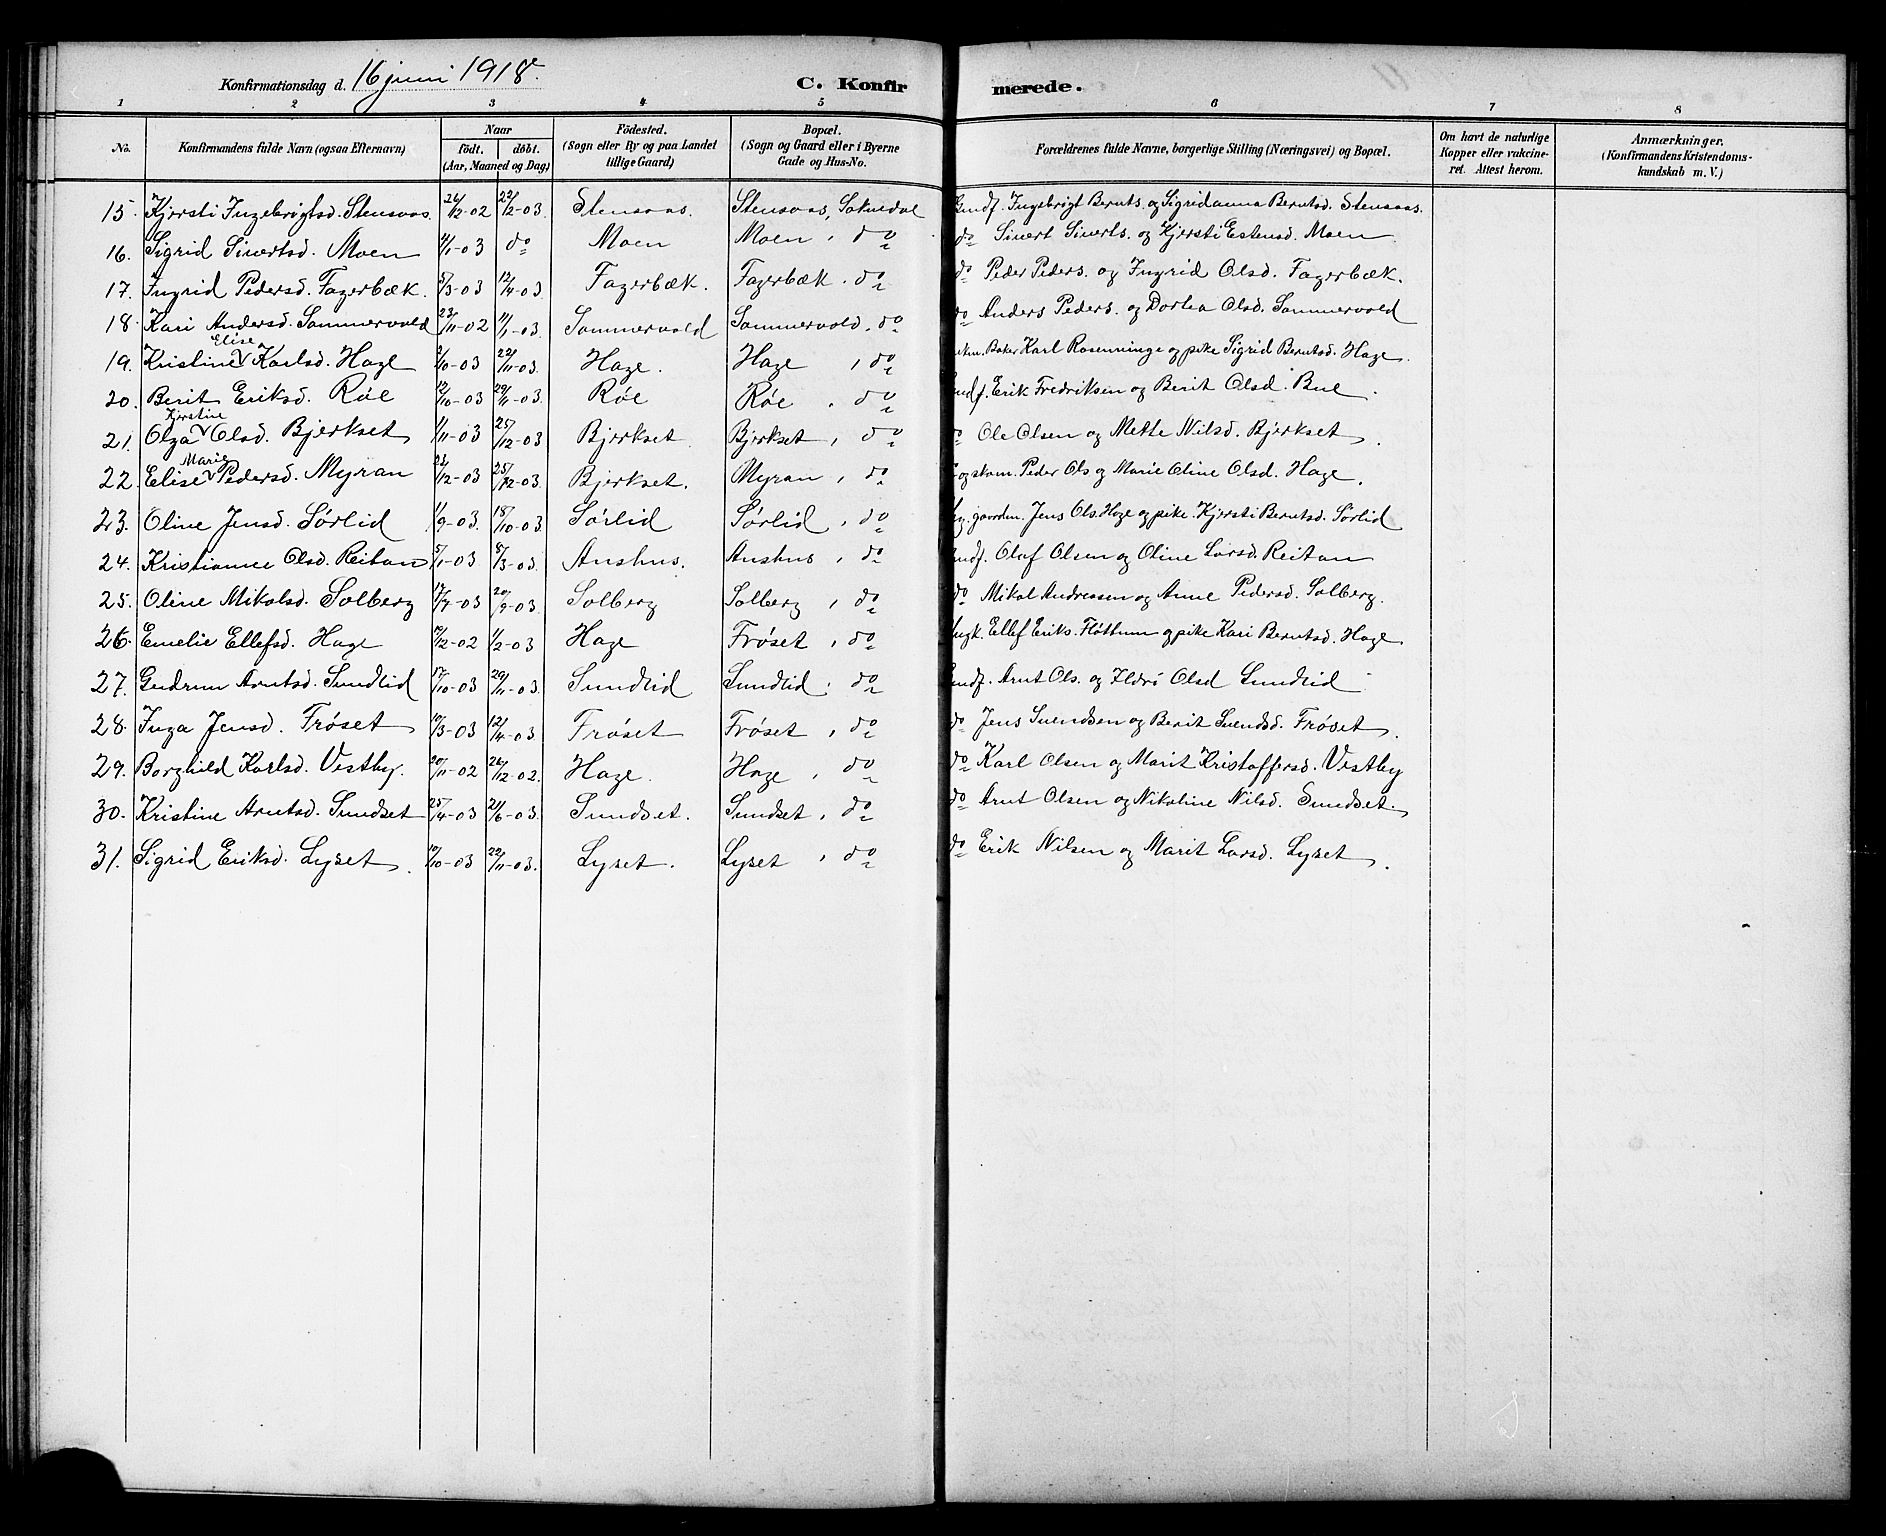 Konfirmationsdag d. 16 juni 1918.
C. Konfirmerede.
1 2 3 4 5 6 7 8
No. Konfirmandens fulde Navn (ogsaa Efternavn) Naar födt. döbt. (Aar, Maaned og Dag) Födested. (Sogn eller By og paa Landet tillige Gaard) Bopæl. (Sogn og Gaard eller i Byerne Gade og Hus-No. Forældrenes fulde Navne, borgerlige Stilling (Næringsvei) og Bopæl. Om havt de naturlige Kopper eller vakcineret. Attest herom. Anmærkninger. (Konfirmandens Kristendomskundskab m. V.)
15. Kjersti Ingebrigtsd. Stensaas. 26/12-02 22/2-03. Stensaas. Stensaas, Soknedal Gmdf. Ingebrigt Bernts. og Sigridanna Berntsd. Stensaas.
16. Sigrid Sivertsd. Moen 11/1-03 do Moen Moen, do do Sivert Siverts. og Kjersti Estensd. Moen
17. Ingrid Pedersd. Fagerbæk. 5/3-03 12/4-03. Fagerbæk. Fagerbæk. do do Peder Peders. og Ingrid Olsd. Fagerbæk.
18. Kari Andersd. Sommervold 23/11-02 11/1-03. Sommervold Sommervold, do do Anders Peders. og Dortea Olsd. Sommervold
19. Kristine Elise Karlsd. Hage 2/10-03 22/11-03. Hage. Hage, do Baker Karl Rosenninge og pike Sigrid Berntsd. Hage.
20. Berit Eriksd. Røe 12/10-03 29/11-03. Røe Røe, do Erik Fredriksen og Berit Olsd. Bue.
21. Olga Kjerstine Olsd. Bjerkset 1/11-03 25/12-03 Bjerkset Bjerkset, do do Ole Olsen og Mette Nilsd. Bjerkset.
22. Elise Marie Pedersd. Myran 23/12-03 25/12-03. Bjerkset. Myran, do og skom. Peder Ols og Marie Oline Olsd. Hage.
23. Oline Jensd. Sørlid 1/9-03. 18/10-03 Sørlid Sørlid, do gaardm. Jens Ols. Hage og pike Kjersti Berntsd. Sørlid
24. Kristianne Olsd. Reitan 5/1-03 8/3-03. Aushus. Aushus, do Olaf Olsen og Oline Larsd. Reitan
25. Oline Mikalsd. Solberg 17/7-03 20/9-03. Solberg Solberg, do do Mikal Andreasen og Anne Pedersd. Solberg.
26. Emelie Ellefsd. Hage 7/12-02 1/2-03 Hage Frøset, do Ungk. Ellef Eriks. Fløttum og pike Kari Berntsd. Hage
27. Gudrun Arntsd. Sundlid 17/10-03 29/11-03. Sundlid Sundlid, do Arnt Ols. og Ildri Olsd Sundlid
28. Inga Jensd. Frøset 10/3-03 12/4-03 Frøset Frøset, do do Jens Svendsen og Berit Svendsd. Frøset.
29. Borghild Karlsd. Vestby. 20/11-02 26/12-02. Hage. Hage, do do Karl Olsen og Marit Kristoffersd. Vestby
30. Kristine Arntsd. Sundset 25/4-03 21/6-03. Sundset. Sundset, do do Arnt Olsen og Nikoline Nilsd. Sundset.
31. Sigrid Eriksd. Lyset. 10/10-03 22/11-03. Lyset. Lyset, do do Erik Nilsen og Marit Larsd. Lyset.